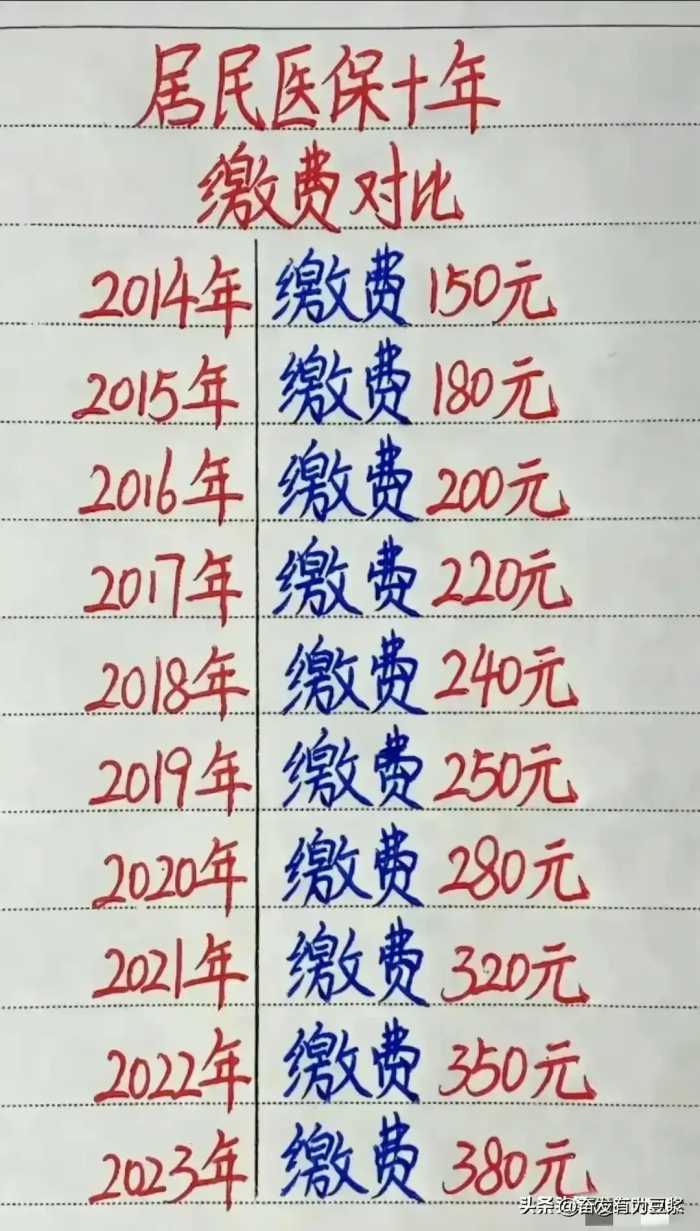 居民医保十年
缴费对比
2014年 缴费 150元
2015年 缴费 180元
2016年 缴费 200元
2017年 缴费 220元
2018年 缴费 240元
2019年 缴费 250元
2020年 缴费 280元
2021年 缴费 320元
2022年 缴费 350元
2023年 缴费 380元
头条